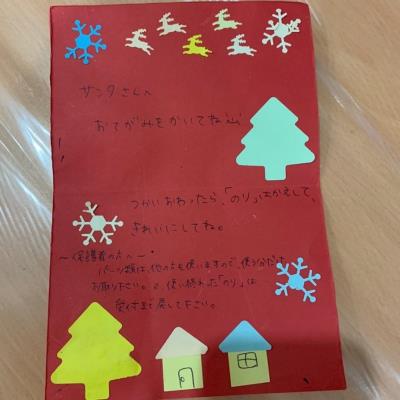 サンタさんへ
おてがみをかいてね
つかいおわったら、「のり」はかえして、
きれいにしてね。
〜保護者の方へ〜
パーツ類は、他の方も使いますので、使う分だけ
お取り下さい。使い終わった「のり」は
受付まで戻して下さい。